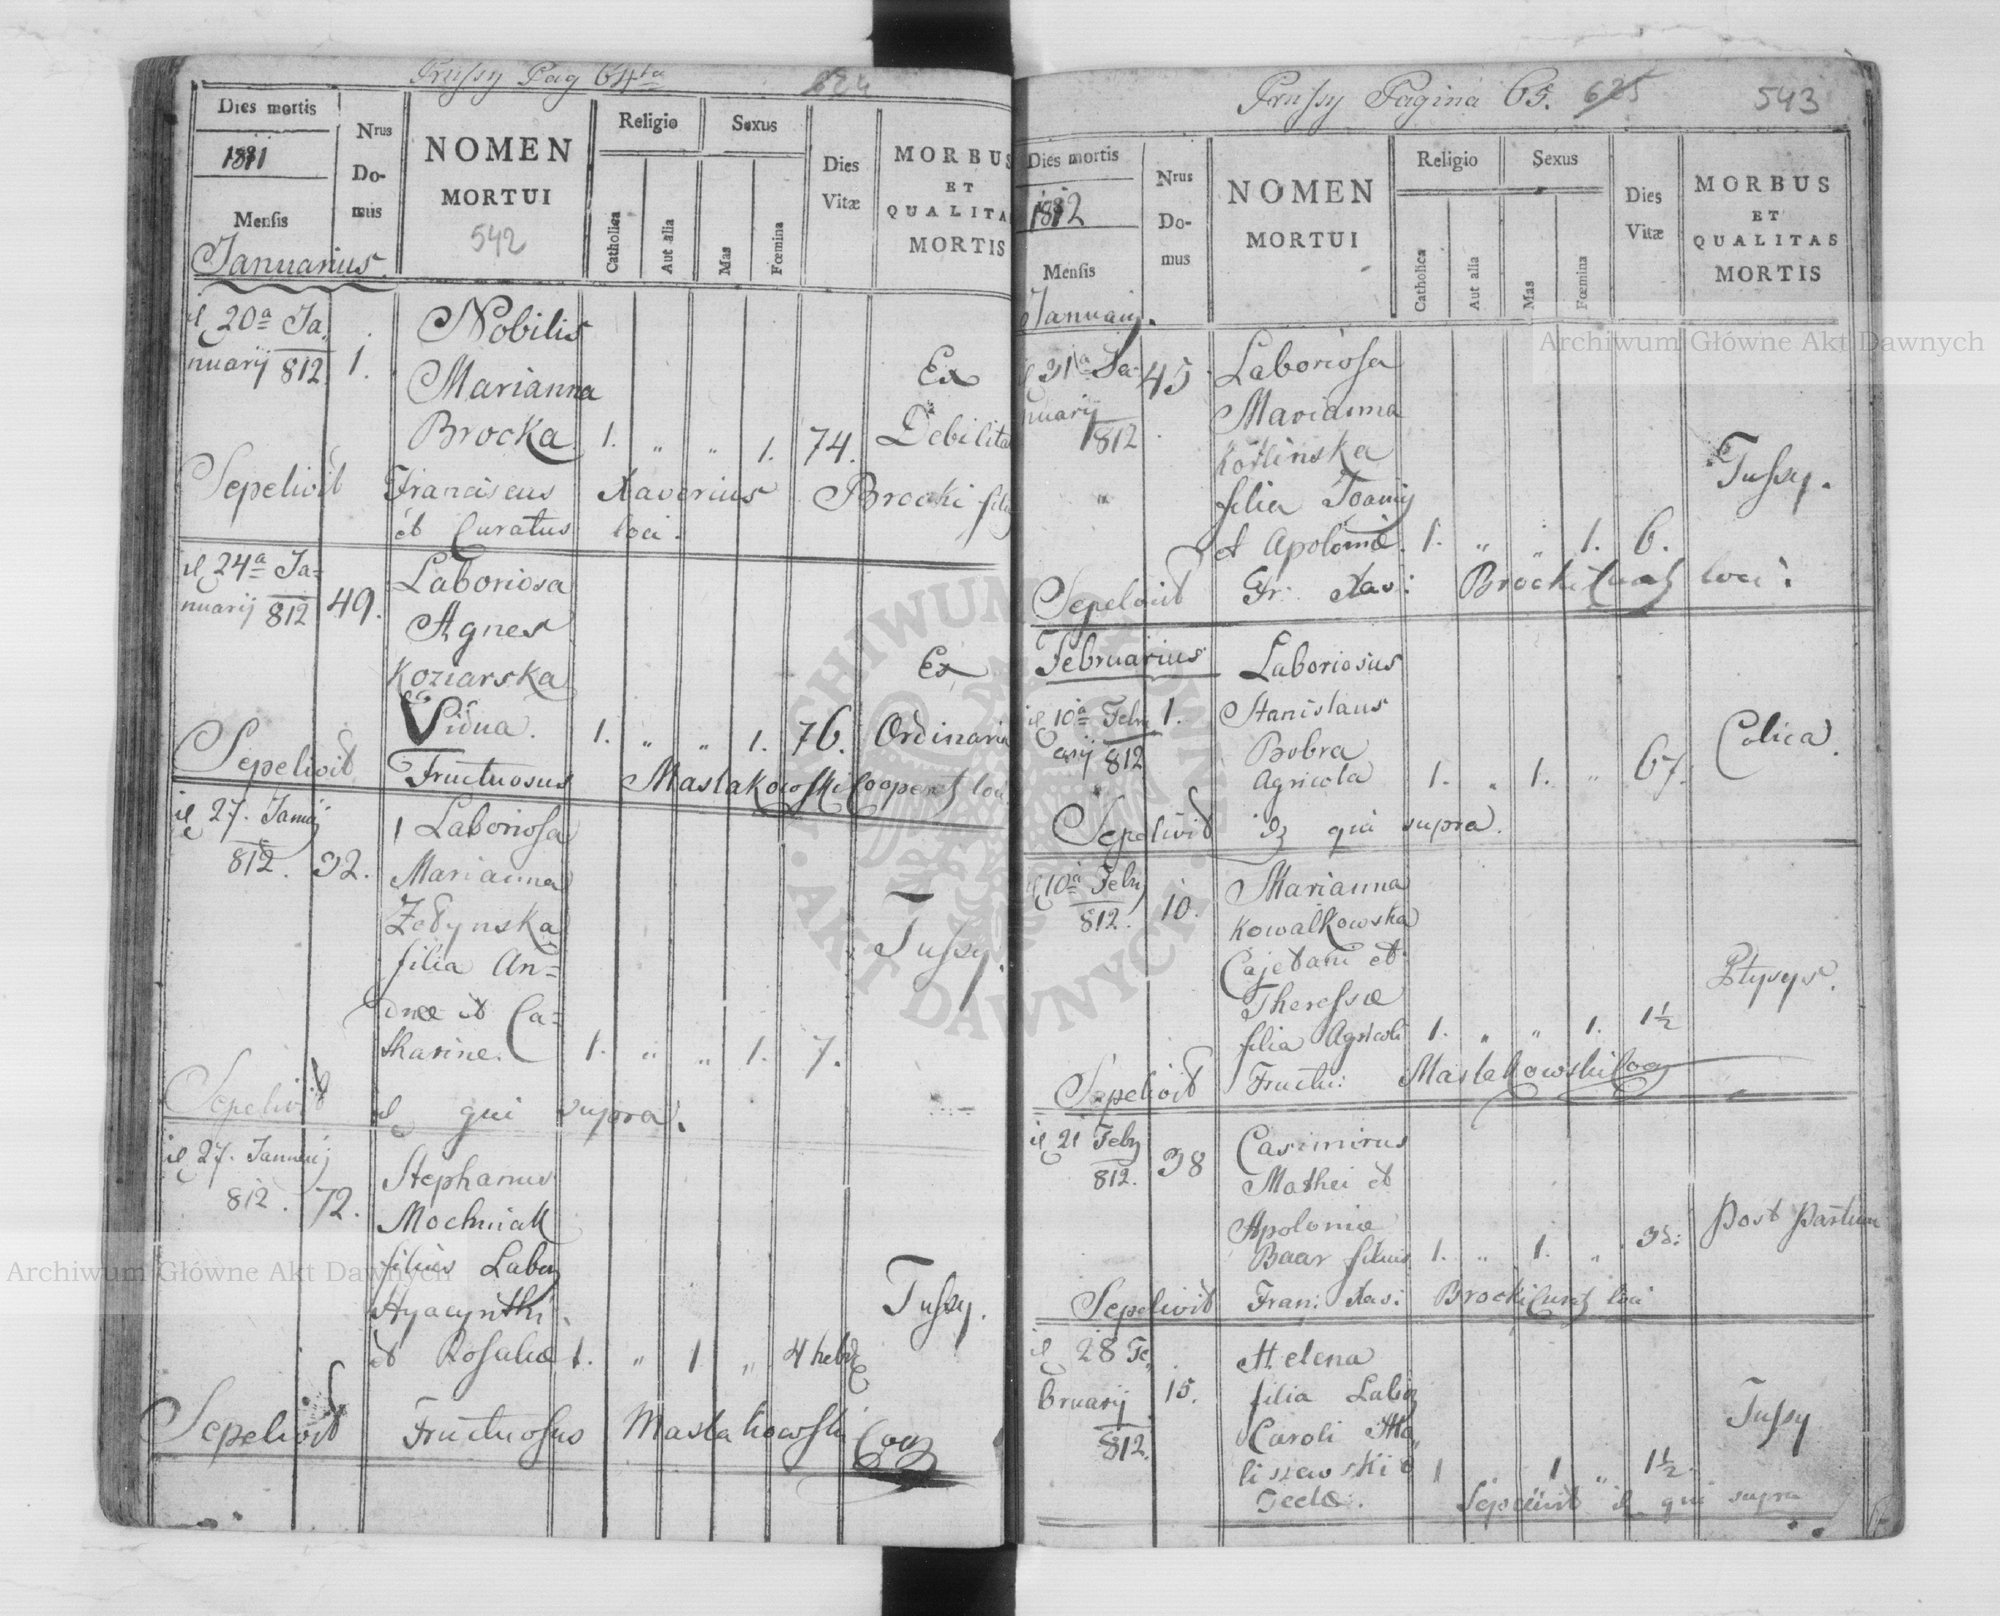 Prussy Pag 64ta
624
Dies mortis
1811
Mensis
Januarius.
Nrus
Do-
mus
NOMEN
MORTUI
542
Religio
Catholica
Aut alia
Sexus
Mas
Fœmina
Dies
Vitæ
MORBUS
ET
QUALITA
MORTIS
20a Ja
nuarij 812
1.
Nobilis
Marianna
Brocka
1. " " 1. 74.
Ex
Debilita
Sepelivit Franciscus Xaverius Brocki
et Curatus loci.
24a Ja=
nuarij 812
49.
Laboriosa
Agnes
Koziarska
Vidua.
1. " " 1. 76.
Ex
Ordinaria
Sepelivit Fructuosus Maslakowski Cooperat loci
27. Januarij
812.
32.
Laboriosa
Marianna
filia An=
dreæ et Ca=
tharine.
1. " " 1. 7.
Tussy.
Sepelivit qui supra.
27. Januarij
812.
72.
Stephanus
Mochniak
filius Labor
Hyacynthi
et Rosaliæ
1. " 1 " 4 hebd
Tussy.
Sepelivit Fructuosus Maslakowski Coo
Prussy Pagina 65. 625
543
Dies mortis
1812
Mensis
Januarij.
Nrus
Do-
mus
NOMEN
MORTUI
Religio
Catholica
Aut alia
Sexus
Mas
Fœmina
Dies
Vitæ
MORBUS
ET
QUALITAS
MORTIS
31a Ja-
nuarij
1812
45
Laboriosa
Marianna
Kotlinska
filia Joanis
et Apoloniæ.
1. " " 1. 6.
Tussy.
Sepelivit Fr: Xav: Brocki Curat loci.
Februarius
10a Febru
arij 812
1.
Laboriosus
Stanislaus
Bobra
Agricola
1. " 1. " 67.
Colica.
Sepelivit qui supra.
10a Febr
812.
10.
Marianna
Kowalkowska
Cajetani et
Theressæ
filia Agricoli
1. " " 1. 1½
Ptysys.
Sepelivit Fructu: Maslakowski Coo
21 Febr
812.
38
Casimirus
Mathei et
Apoloniæ
Baar filius
1. " 1. "
Post Partum
Sepelivit Fran: Xav: Brocki Curat loci
28 Fe
bruarij
812.
15.
Helena
filia Labor
Caroli Ma
liszewski et
Teclæ.
1 1 " 1½.
Tussy
Sepelivit qui supra
Archiwum Główne Akt Dawnych
Archiwum Główne Akt Dawnych
ARCHIWUM GŁÓWNE · AKT DAWNYCH ·